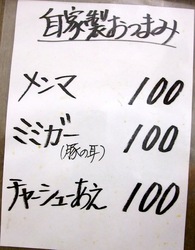 自家製おつまみ
メンマ 100
ミミガー 100
(豚の耳)
チャーシューあえ 100